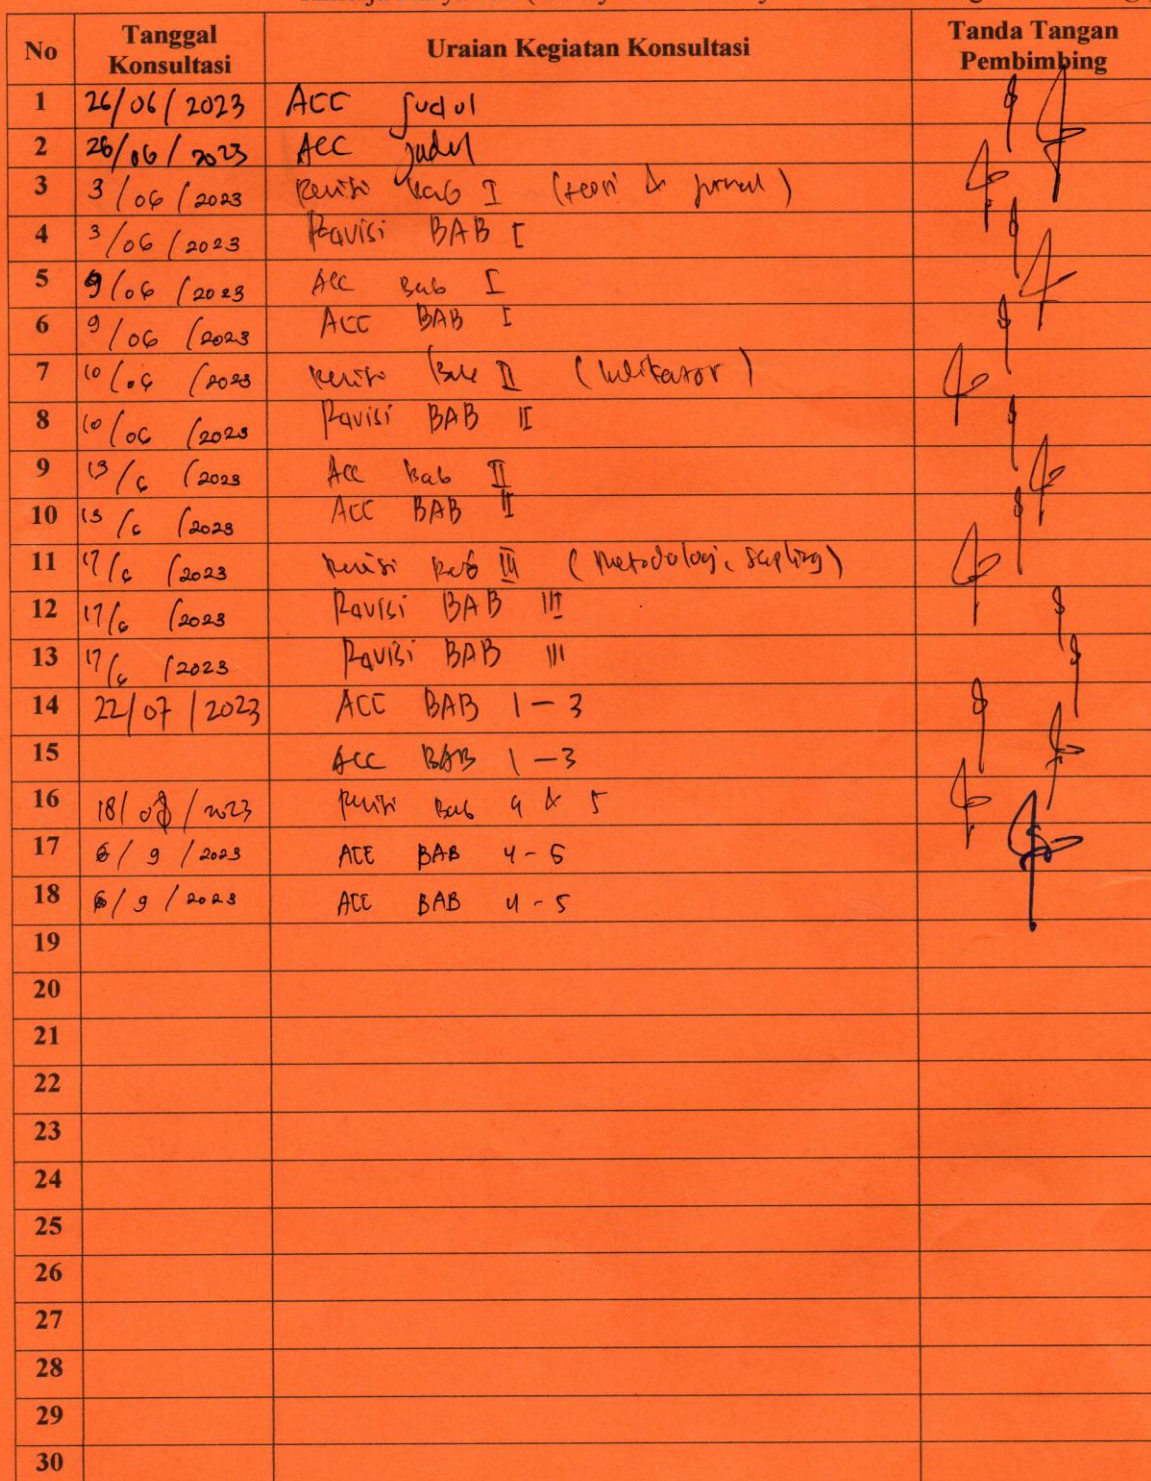 No Tanggal Konsultasi Uraian Kegiatan Konsultasi Tanda Tangan Pembimbing
1 26/06/2023 ACC Judul
2 26/06/2023 ACC Judul
3 3/06/2023 Revisi Bab I (teori & jurnal)
4 3/06/2023 Ravisi BAB I
5 9/06/2023 Acc Bab I
6 9/06/2023 ACC BAB I
7 10/06/2023 Revisi Bab II (Indikator)
8 10/06/2023 Ravisi BAB II
9 13/6/2023 Acc Bab II
10 13/6/2023 ACC BAB II
11 17/6/2023 Revisi Bab III (Metodologi,
12 17/6/2023 Ravisi BAB III
13 17/6/2023 Ravisi BAB III
14 22/07/2023 ACC BAB 1-3
15 ACC BAB 1-3
16 Revisi Bab 4 & 5
17 6/9/2023 ACC BAB 4-5
18 6/9/2023 ACC BAB 4-5
19
20
21
22
23
24
25
26
27
28
29
30